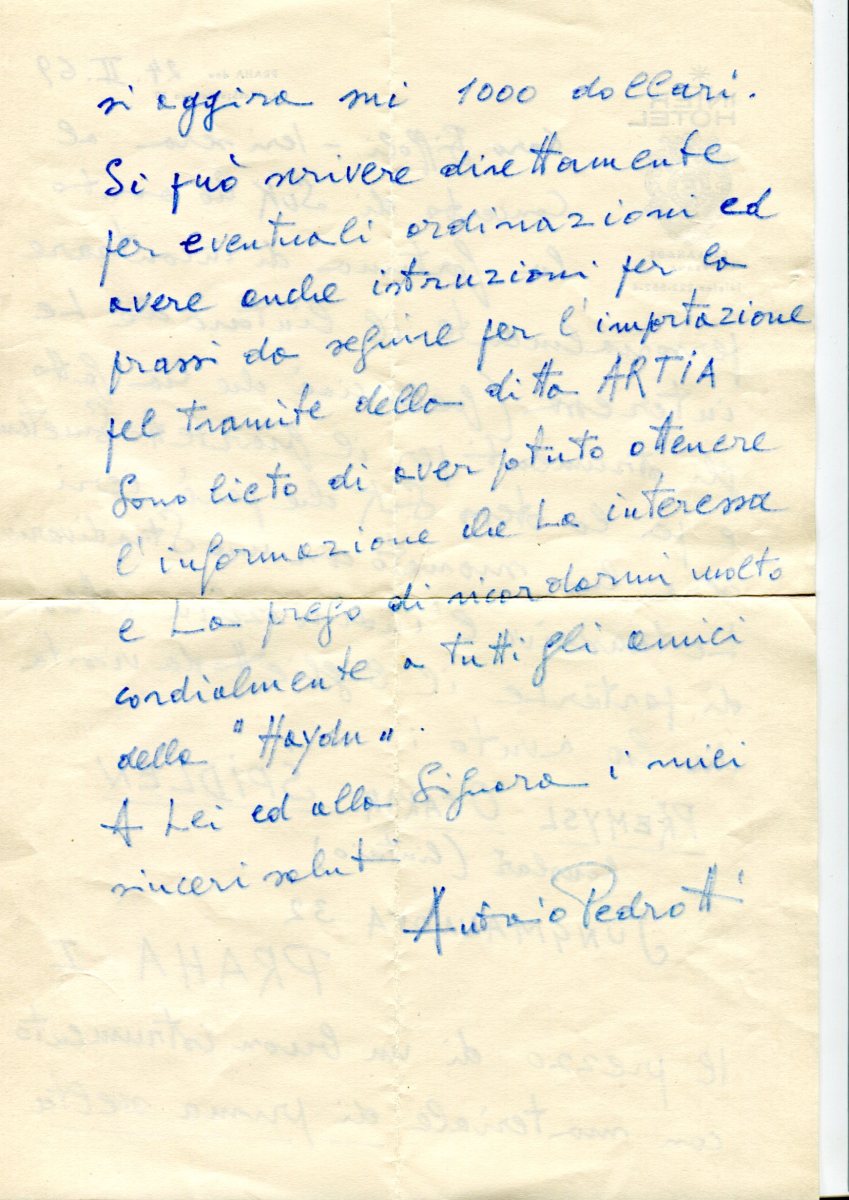 si aggira sui 1000 dollari.
Si può scrivere direttamente
per eventuali ordinazioni ed
avere anche istruzioni per la
prassi da seguire per l'importazione
pel tramite della ditta ARTIA
Sono lieto di aver potuto ottenere
l'informazione che La interessa
e La prego di ricordarmi molto
cordialmente a tutti gli amici
della "Haydn".
A Lei ed alla Signora i miei
sinceri saluti
Antonio Pedrotti